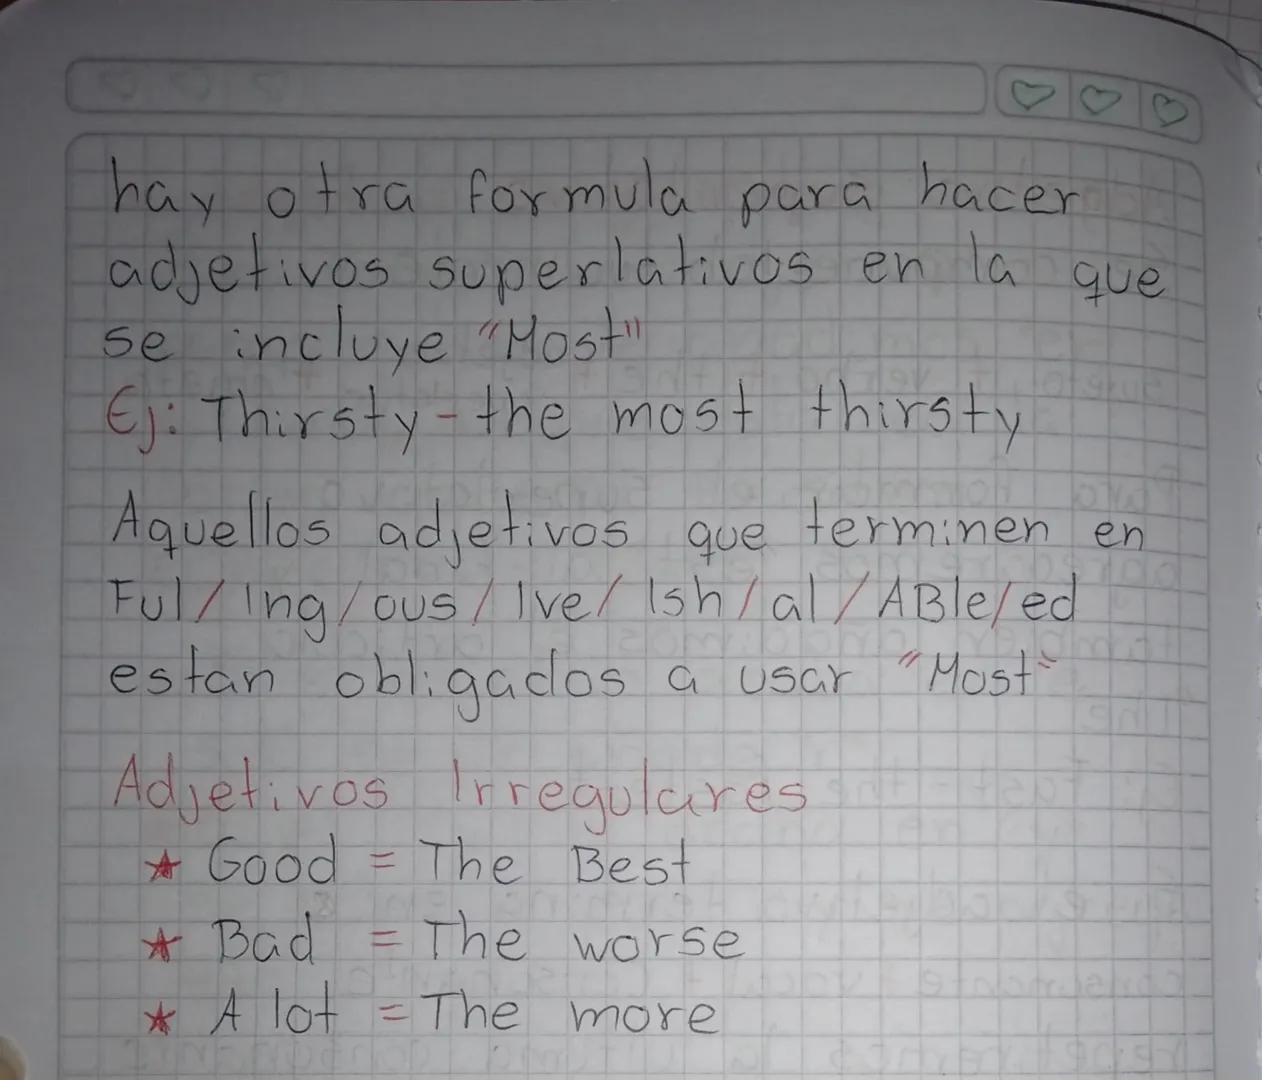 hay otra formula para hacer
adjetivos superlativos en la que
se incluye "Most"
Ej: Thirsty - the most thirsty
Aquellos adjetivos que terminen en
Ful / Ing / ous / Ive / Ish / al / ABle / ed
estan obligados a usar "Most"
Adjetivos Irregulares
★ Good = The Best
★ Bad = The worse
★ A lot = The more